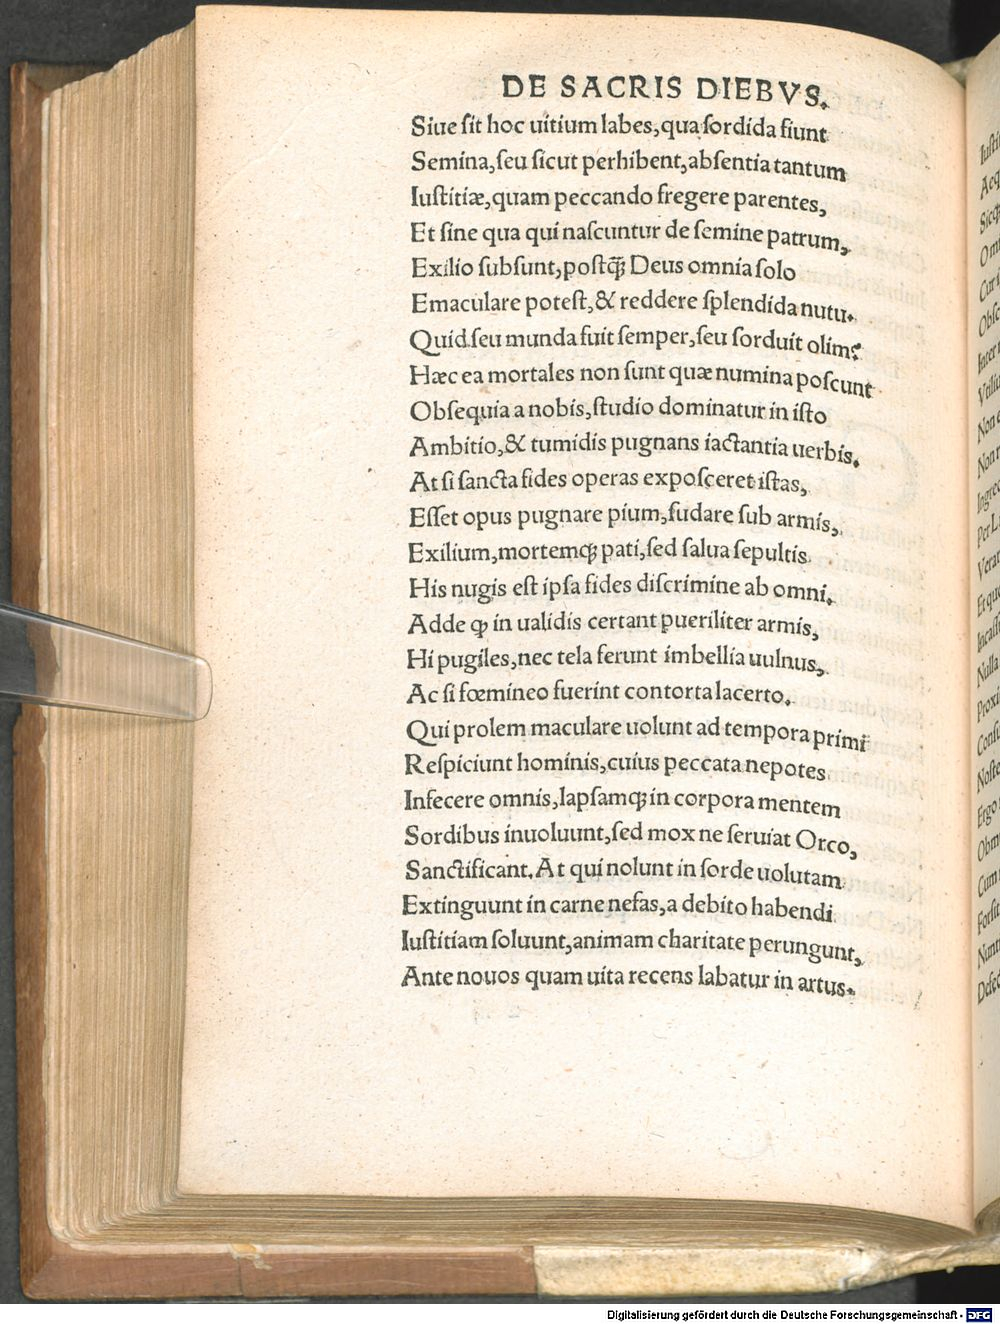 DE SACRIS DIEBVS.
Siue ſit hoc uitium labes,qua ſordida fiunt
Semina,ſeu ſicut perhibent,abſentia tantum
Iuſtitiæ,quam peccando fregere parentes,
Et ſine qua qui naſcuntur de ſemine patrum,
Exilio ſubſunt,poſtq̃ꝫ Deus omnia ſolo
Emaculare poteſt,& reddere ſplendida nutu.
Quid ſeu munda fuit ſemper,ſeu ſorduit olim?
Hæc ea mortales non ſunt quæ numina poſcunt
Obſequia a nobis,ſtudio dominatur in iſto
Ambitio,& tumidis pugnans iactantia uerbis.
At ſi ſancta fides operas expoſceret iſtas,
Eſſet opus pugnare pium,ſudare ſub armis,
Exilium,mortemqꝫ pati,ſed ſalua ſepultis
His nugis eſt ipſa fides diſcrimine ab omni.
Adde ꝙ in ualidis certant pueriliter armis,
Hi pugiles,nec tela ferunt imbellia uulnus,
Ac ſi fœmineo fuerint contorta lacerto.
Qui prolem maculare uolunt ad tempora primi
Reſpiciunt hominis,cuius peccata nepotes
Infecere omnis,lapſamqꝫ in corpora mentem
Sordibus inuoluunt,ſed mox ne ſeruiat Orco,
Sanctificant.At qui nolunt in ſorde uolutam
Extinguunt in carne nefas,a debito habendi
Iuſtitiam ſoluunt,animam charitate perungunt,
Ante nouos quam uita recens labatur in artus.
Digitalisierung gefördert durch die Deutsche Forschungsgemeinschaft - DFG